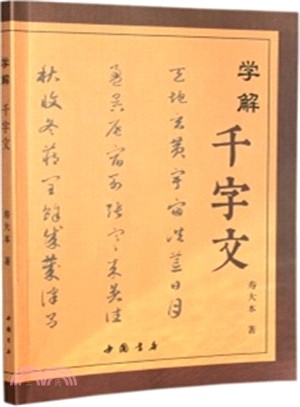 学解
千字文
寿大本 著
天地玄黃宇宙洪荒日月
盈昃辰宿列張寒來暑往
秋收冬藏閏餘成歲律呂
中国书店
学解 千字文